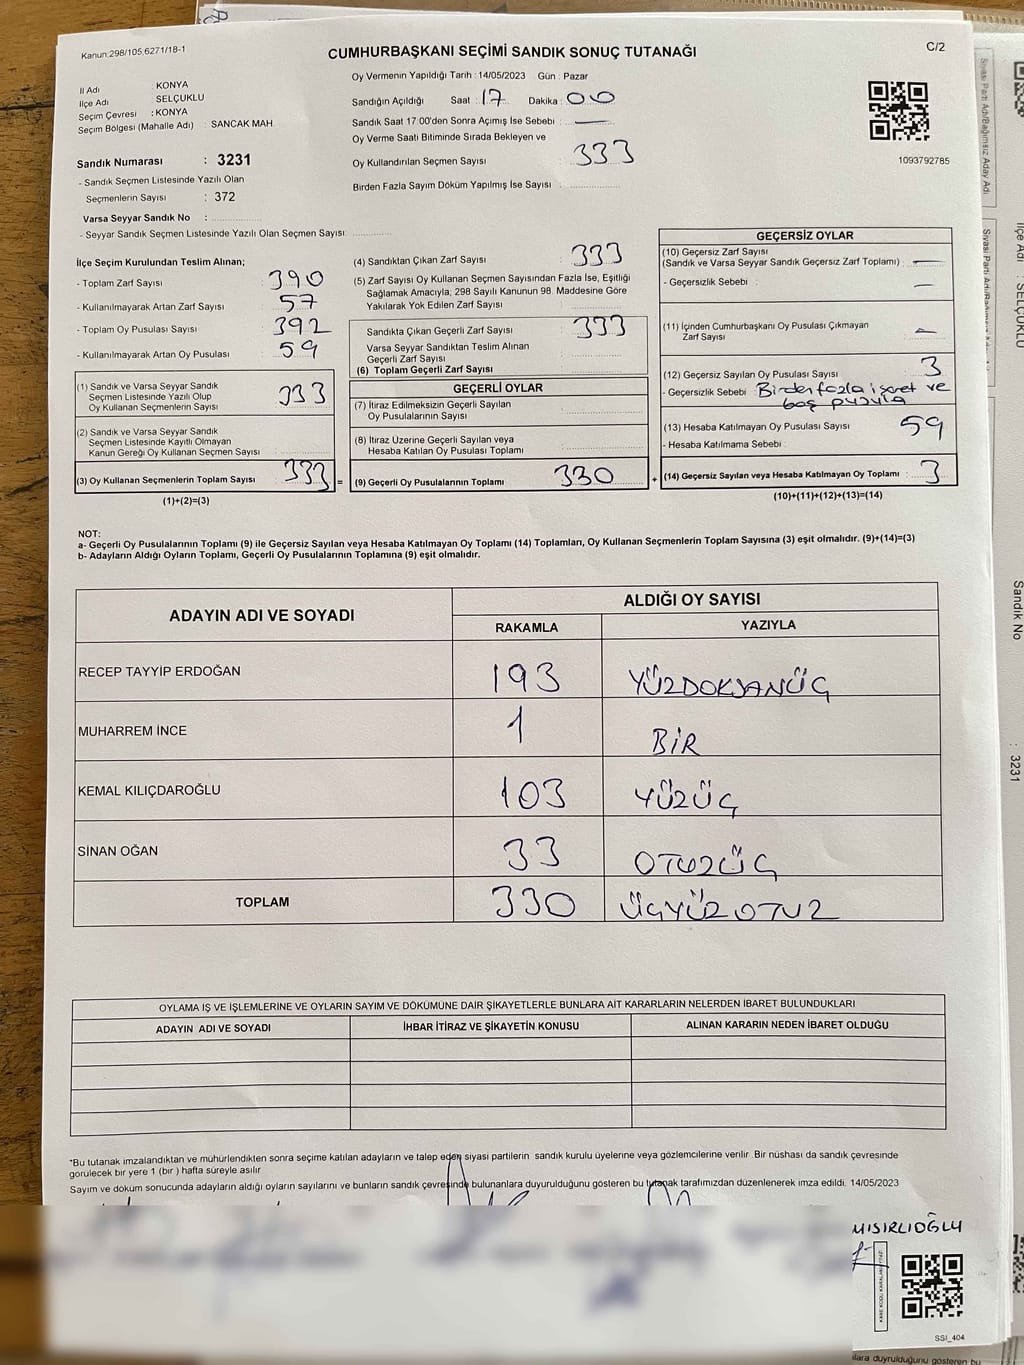 Kanun:298/105,6271/18-1
CUMHURBAŞKANI SEÇİMİ SANDIK SONUÇ TUTANAĞI
C/2
İl Adı : KONYA
İlçe Adı : SELÇUKLU
Seçim Çevresi : KONYA
Seçim Bölgesi (Mahalle Adı) : SANCAK MAH.
Sandık Numarası : 3231
- Sandık Seçmen Listesinde Yazılı Olan
Seçmenlerin Sayısı : 372
Varsa Seyyar Sandık No :
- Seyyar Sandık Seçmen Listesinde Yazılı Olan Seçmen Sayısı:
Oy Vermenin Yapıldığı Tarih : 14/05/2023 Gün : Pazar
Sandığın Açıldığı Saat : 17 Dakika : 00
Sandık Saat 17:00'den Sonra Açımış İse Sebebi : —
Oy Verme Saati Bitiminde Sırada Bekleyen ve
Oy Kullandırılan Seçmen Sayısı : 333
Birden Fazla Sayım Döküm Yapılmış İse Sayısı :
1093792785
İlçe Seçim Kurulundan Teslim Alınan;
- Toplam Zarf Sayısı : 390
- Kullanılmayarak Artan Zarf Sayısı : 57
- Toplam Oy Pusulası Sayısı : 392
- Kullanılmayarak Artan Oy Pusulası : 59
(1) Sandık ve Varsa Seyyar Sandık
Seçmen Listesinde Yazılı Olup
Oy Kullanan Seçmenlerin Sayısı : 333
(2) Sandık ve Varsa Seyyar Sandık
Seçmen Listesinde Kayıtlı Olmayan
Kanun Gereği Oy Kullanan Seçmen Sayısı :
(3) Oy Kullanan Seçmenlerin Toplam Sayısı : 333
(1)+(2)=(3)
=
(4) Sandıktan Çıkan Zarf Sayısı : 333
(5) Zarf Sayısı Oy Kullanan Seçmen Sayısından Fazla İse, Eşitliği
Sağlamak Amacıyla; 298 Sayılı Kanunun 98. Maddesine Göre
Yakılarak Yok Edilen Zarf Sayısı :
Sandıkta Çıkan Geçerli Zarf Sayısı : 333
Varsa Seyyar Sandıktan Teslim Alınan
Geçerli Zarf Sayısı :
(6) Toplam Geçerli Zarf Sayısı :
GEÇERLİ OYLAR
(7) İtiraz Edilmeksizin Geçerli Sayılan
Oy Pusulalarının Sayısı :
(8) İtiraz Üzerine Geçerli Sayılan veya
Hesaba Katılan Oy Pusulası Toplamı :
(9) Geçerli Oy Pusulalarının Toplamı : 330
+
GEÇERSİZ OYLAR
(10) Geçersiz Zarf Sayısı
(Sandık ve Varsa Seyyar Sandık Geçersiz Zarf Toplamı) : —
- Geçersizlik Sebebi : —
(11) İçinden Cumhurbaşkanı Oy Pusulası Çıkmayan
Zarf Sayısı : —
(12) Geçersiz Sayılan Oy Pusulası Sayısı : 3
- Geçersizlik Sebebi : Birden fazla işaret ve
boş pusula
(13) Hesaba Katılmayan Oy Pusulası Sayısı : 59
- Hesaba Katılmama Sebebi :
(14) Geçersiz Sayılan veya Hesaba Katılmayan Oy Toplamı : 3
(10)+(11)+(12)+(13)=(14)
NOT:
a- Geçerli Oy Pusulalarının Toplamı (9) ile Geçersiz Sayılan veya Hesaba Katılmayan Oy Toplamı (14) Toplamları, Oy Kullanan Seçmenlerin Toplam Sayısına (3) eşit olmalıdır. (9)+(14)=(3)
b- Adayların Aldığı Oyların Toplamı, Geçerli Oy Pusulalarının Toplamına (9) eşit olmalıdır.
ADAYIN ADI VE SOYADI
ALDIĞI OY SAYISI
RAKAMLA YAZIYLA
RECEP TAYYİP ERDOĞAN 193 YÜZDOKSANÜÇ
MUHARREM İNCE 1 BİR
KEMAL KILIÇDAROĞLU 103 YÜZÜÇ
SİNAN OĞAN 33 OTUZÜÇ
TOPLAM 330 ÜÇYÜZOTUZ
OYLAMA İŞ VE İŞLEMLERİNE VE OYLARIN SAYIM VE DÖKÜMÜNE DAİR ŞİKAYETLERLE BUNLARA AİT KARARLARIN NELERDEN İBARET BULUNDUKLARI
ADAYIN ADI VE SOYADI İHBAR İTİRAZ VE ŞİKAYETİN KONUSU ALINAN KARARIN NEDEN İBARET OLDUĞU
*Bu tutanak imzalandıktan ve mühürlendikten sonra seçime katılan adayların ve talep eden siyasi partilerin sandık kurulu üyelerine veya gözlemcilerine verilir. Bir nüshası da sandık çevresinde
görülecek bir yere 1 (bir) hafta süreyle asılır.
Sayım ve döküm sonucunda adayların aldığı oyların sayılarını ve bunların sandık çevresinde bulunanlara duyurulduğunu gösteren bu tutanak tarafımızdan düzenlenerek imza edildi. 14/05/2023
MISIRLIOĞLU
SSI_404
Siyasi Parti Adı/Bağımsız Aday Adı
İlçe Adı : SELÇUKLU
Sandık No : 3231